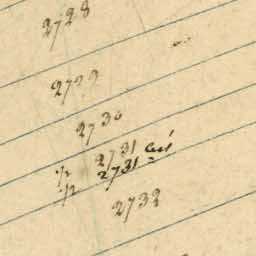 2728
2729
2730
½ 2731
½ 2731
2732